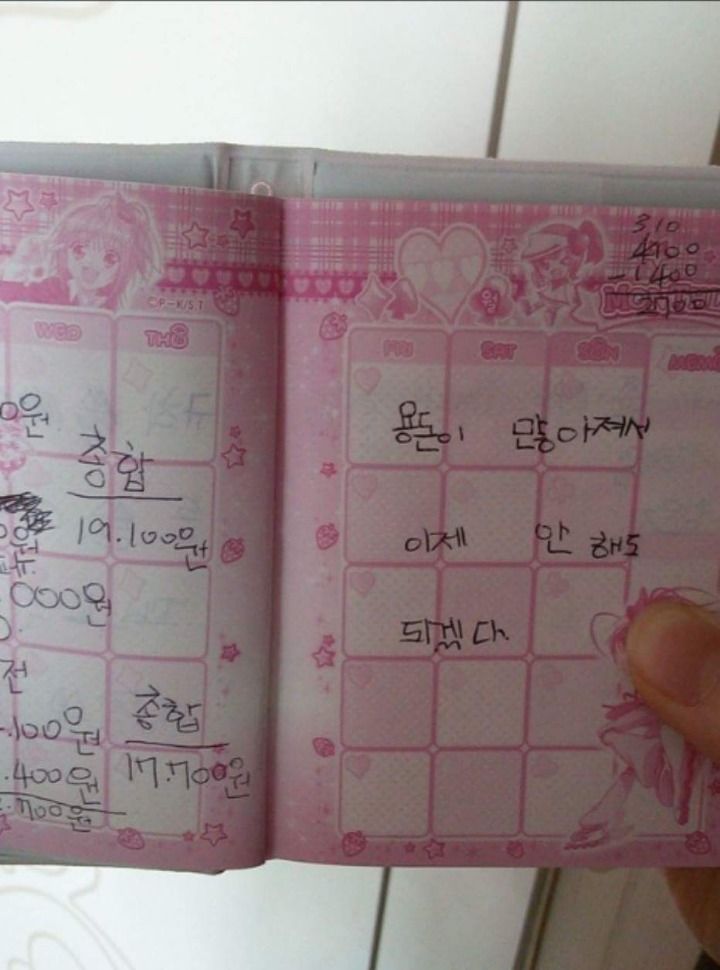 ©P-K/S.T
WED THU
0원
종합
19.100원
000원
전
종합
.100원
17.700원
.400원
.700원
310
4100
-1400
2700
FRI SAT SUN MEMO
용돈이 많아져서
이제 안 해도
되겠다.